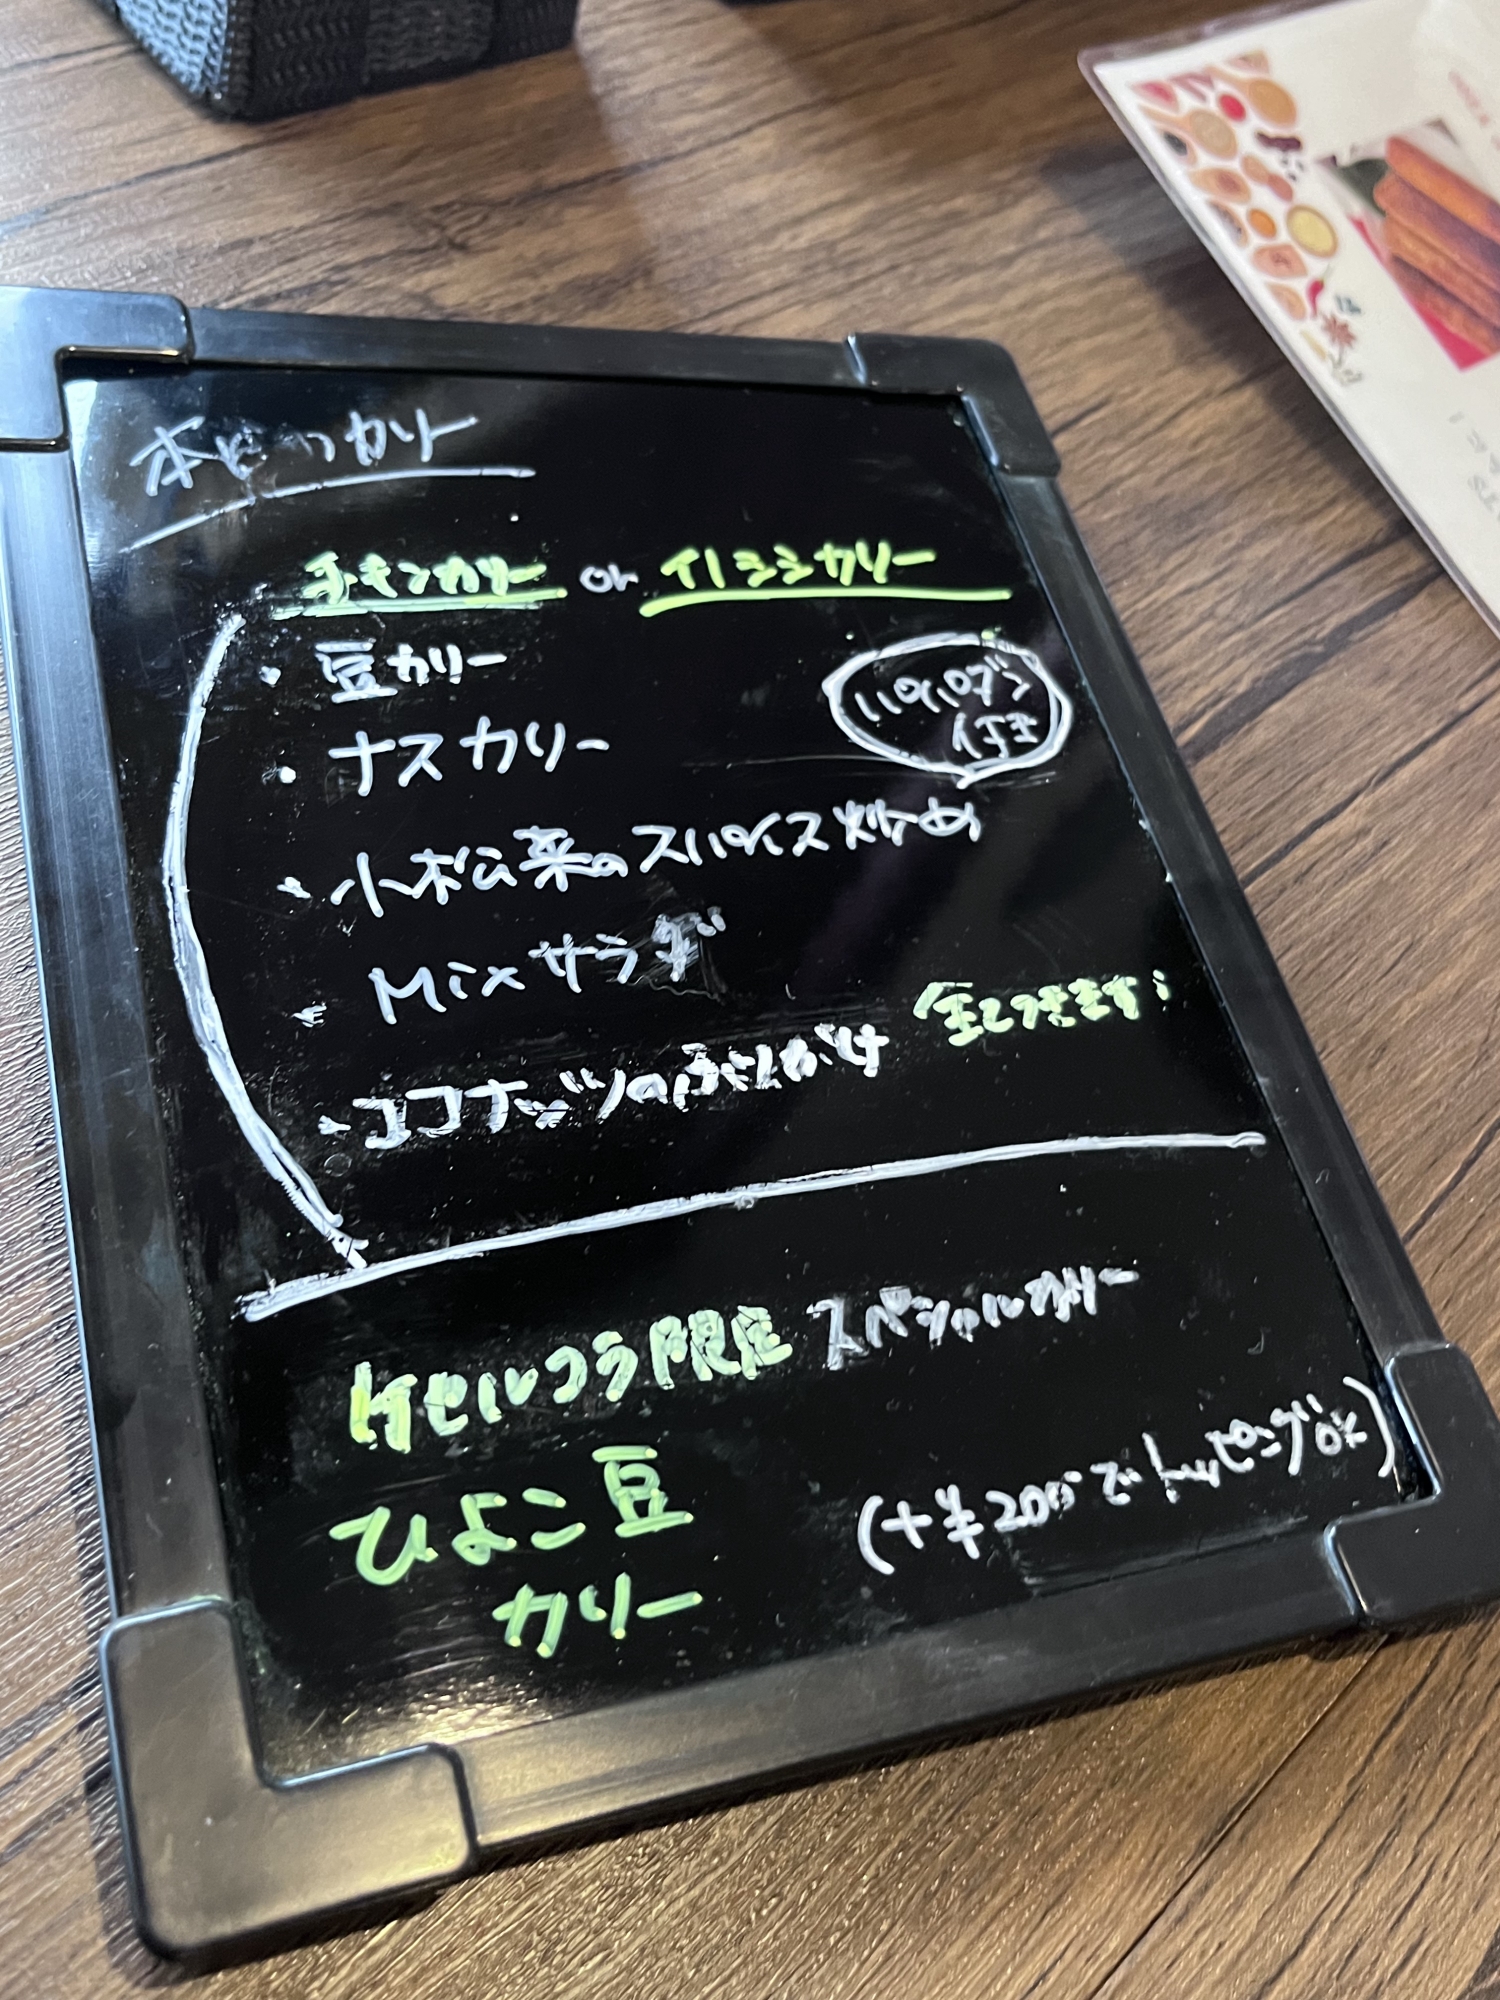 本日のカリー
チキンカリー or イノシシカリー
・豆カリー
パパダン
付き
・ナスカリー
・小松菜のスパイス炒め
・Mixサラダ
・ココナッツのふりかけ
全てつきます!
ケセルコラ限定 スペシャルカリー
ひよこ豆
カリー
(+¥200でトッピングOK)